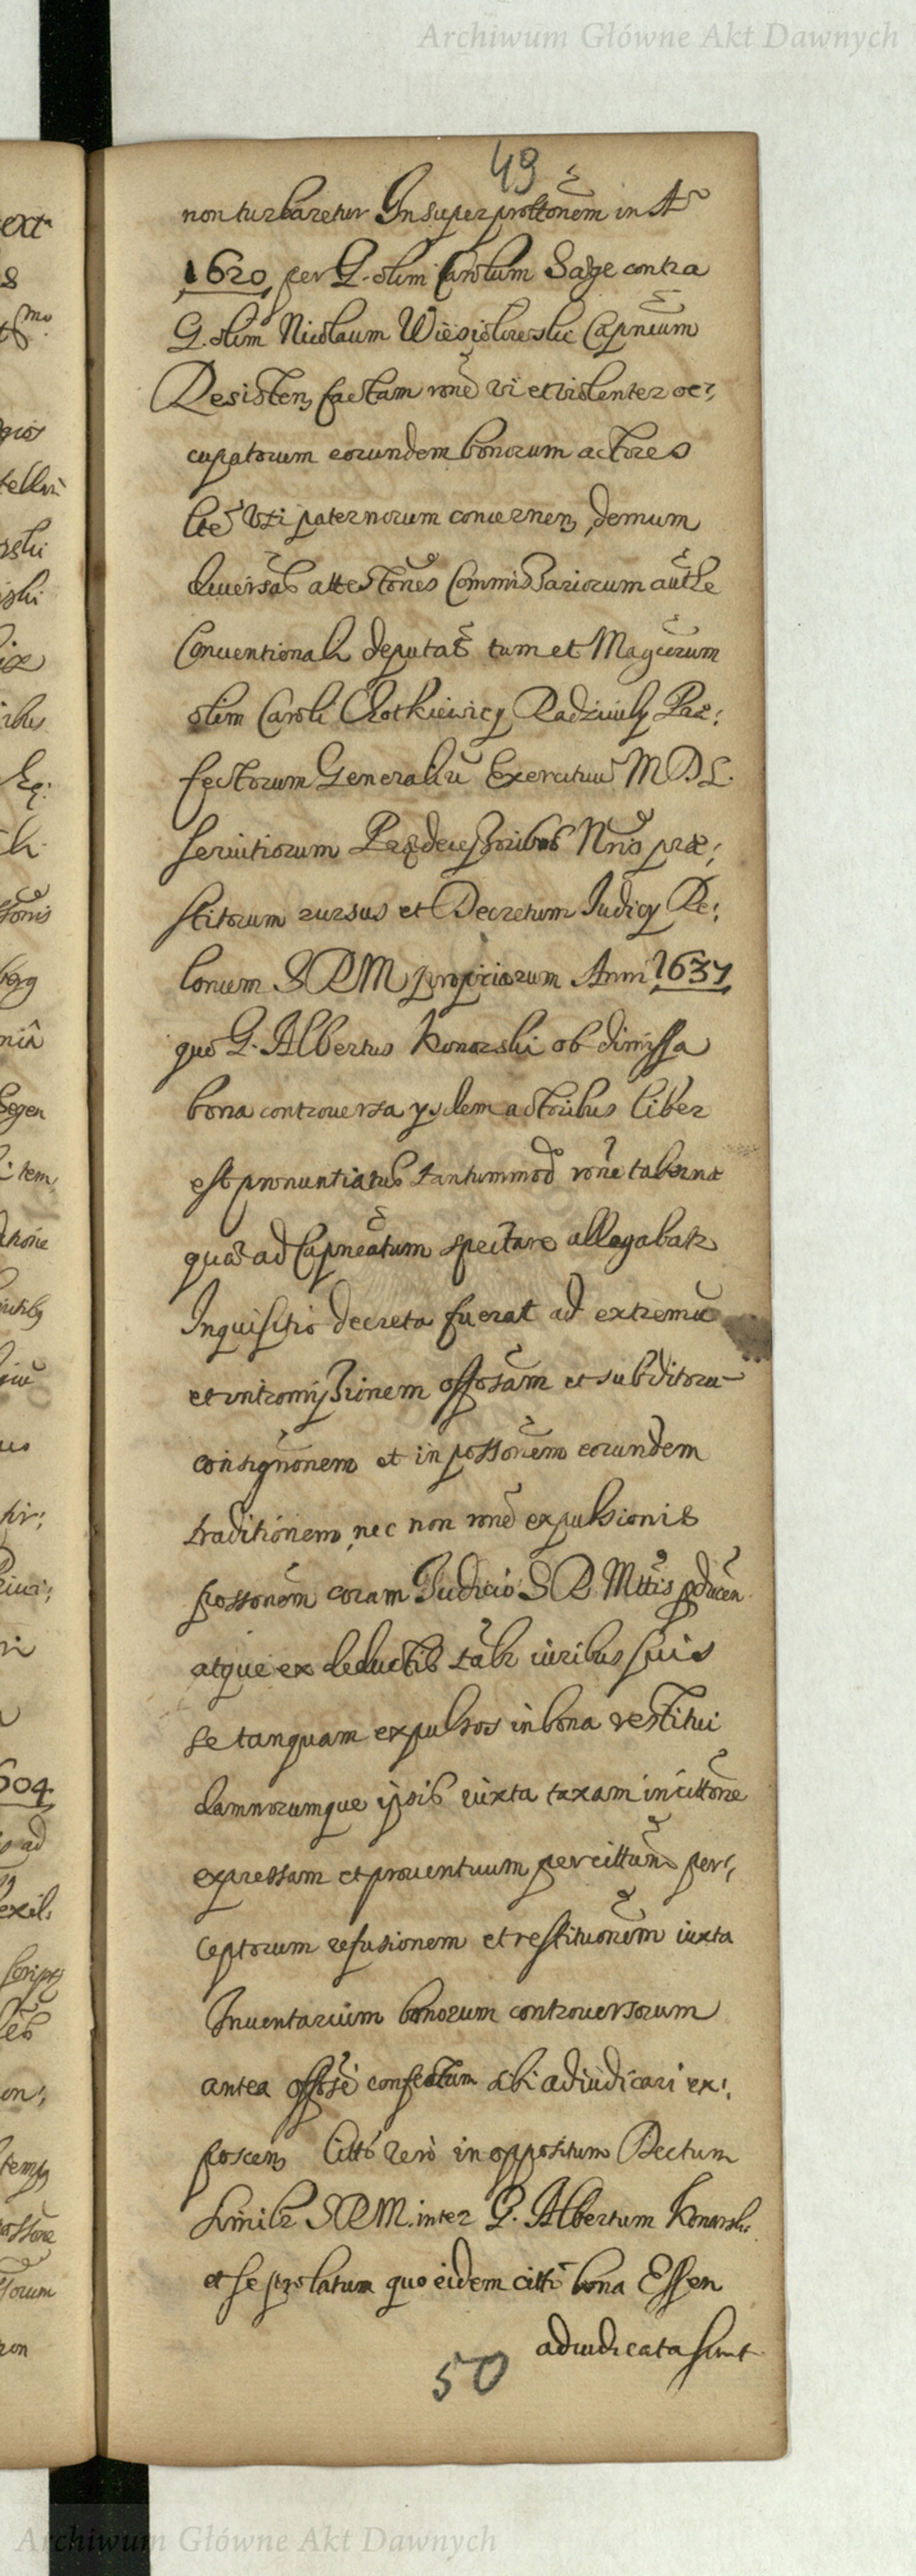 Archiwum Główne Akt Dawnych
49
non turbaretur Insuper prottõnem in Aº
1620 per G. olim Carolum Sage contra
G. olim Nicolaum Wiesiołowski Capneum
Resisten, factam rõne vi et violenter oc:
cupatorum eorundem bonorum actores
uti paternorum concernen, demum
diuersas attestõnes Commissariorum authe
Conuentionali deputat tum et Magcorum
olim Caroli Chotkiewicy Radziwily Præ:
fectorum Generaliũ Exercitus M D L.
seruitiorum Prædecessoribus Nris præ:
stitorum rursus et Decretum Iudicy Re:
lonum S R M propriarum Anni 1637
quo G. Albertus Konarski ob dimissa
bona controuersa ysdem actoribus liber
est pronuntiatus tantummod rõne tabernæ
qua ad Capneatum spectare allegabatr
Inquisitio decreta fuerat ad extremũ
et intromissionem offosam et subditorũ
consignonem et in possonem eorundem
traditionem, nec non rõne expulsionis
possonem coram Iudicio S R Mttis pducen
atque ex deductis talr iuribus suis
se tanquam expulsos in bona restitui
damnorumque ipsis iuxta taxam in cittõne
expressam et prouentuum per cittum per:
ceptorum refusionem et restituonem iuxta
Inuentarium bonorum controuersorum
antea offose confectum sibi adiudicari ex:
poscen, Citts vero in oppositum Dectum
similr S R M. inter G. Albertum Konarski
et se prolatum quo eidem citto bona Essen
adiudicata sunt
50
Archiwum Główne Akt Dawnych